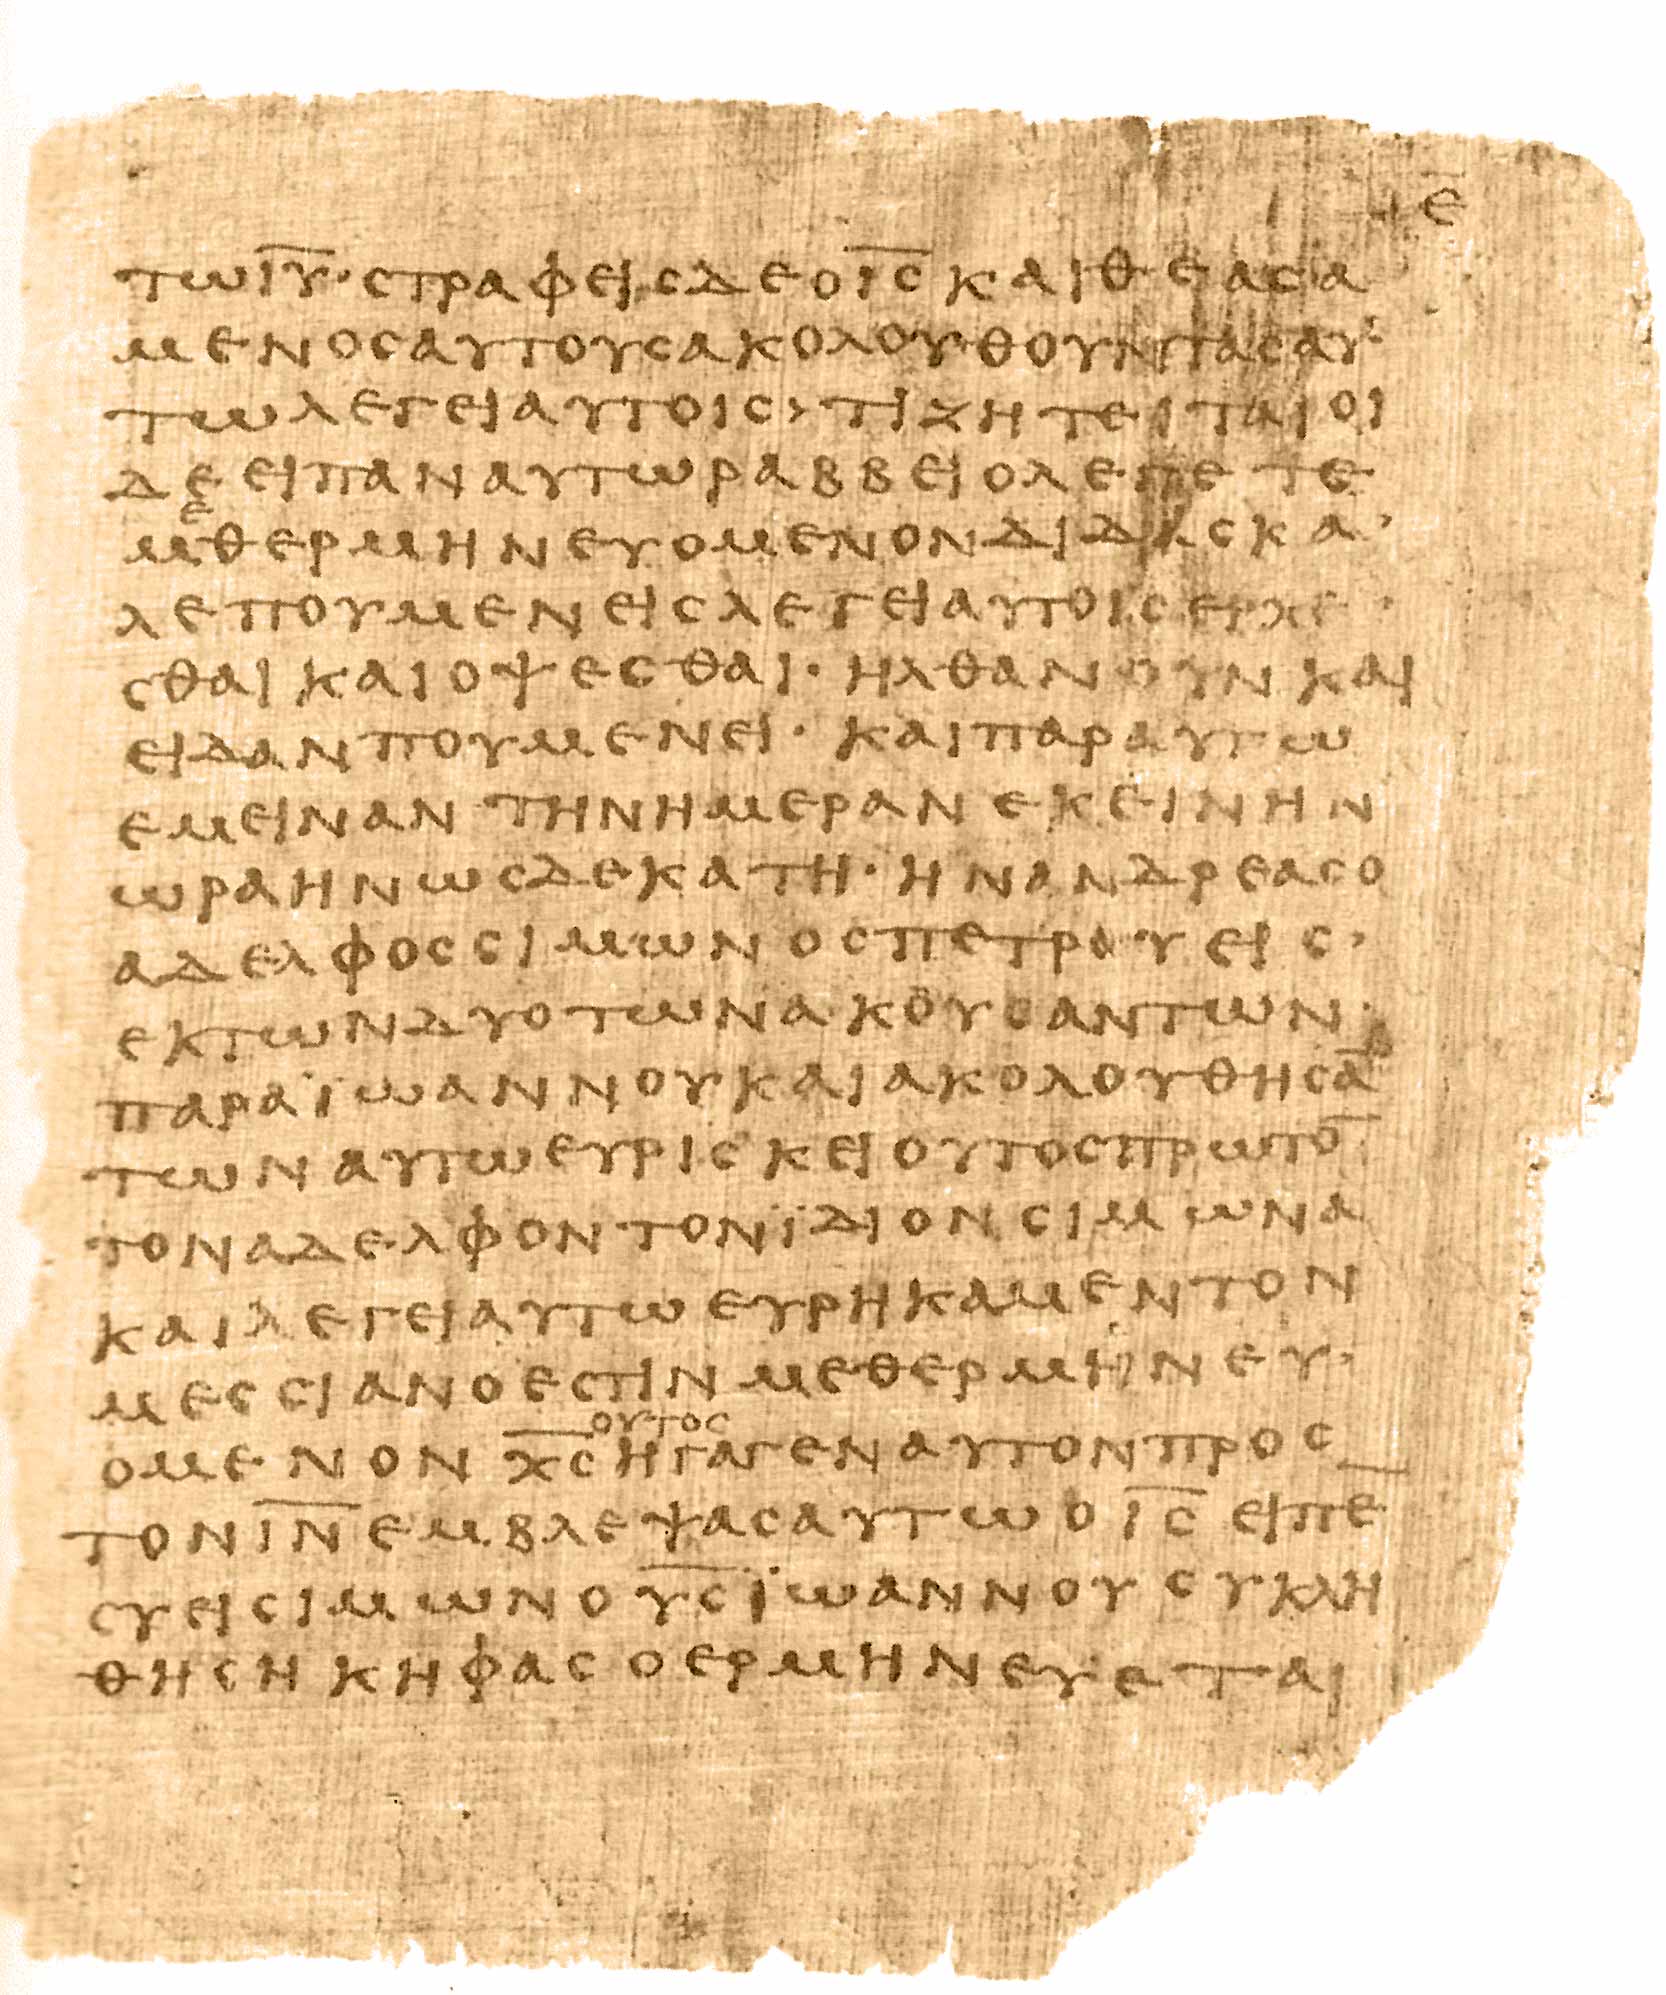 ε̅
τωι̅υ̅·στραφεισδεοι̅ς̅καιθεασα
μενοσαυτουσακολουθουντασαυ
τωλεγειαυτοις›τιζητειταιοι
δεειπαναυτωραββειολεπετε
μ`ε´θερμηνευομενονδιδασκα›
λεπουμενεισλεγειαυτοισερχε›
σθαικαιοψεσθαι·ηλθανουνκαι
ειδανπουμενει·καιπαραυτω
εμειναντηνημερανεκεινην
ωραηνωσδεκατη·ηνανδρεασο
αδελφοσσιμωνοσπετρουεις›
εκτωνδυοτωνακουσαντων·
παραϊωαννουκαιακολουθησα̅
τωναυτωευρισκειουτοσπρωτο̅
τοναδελφοντονϊδιονσιμωνα
καιλεγειαυτωευρηκαμεντον
μεσσιανοεστινμεθερμηνευ›
ομενονχ̅ς̅`ουτος´ηγαγεναυτονπρος
τονι̅ν̅εμβλεψασαυτωοι̅ς̅ειπε̅
συεισιμωνου̅ς̅ϊωαννουσυκλη
θησηκηφασοερμηνευεται